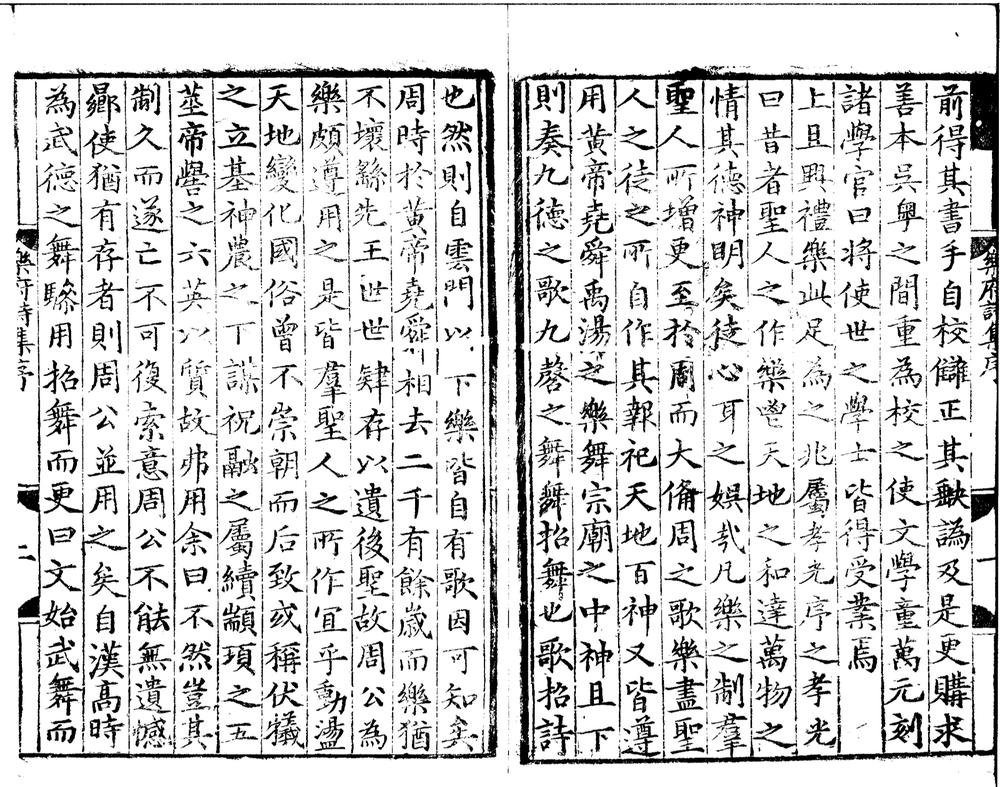 樂府詩集序
一
前得其書手自校讎正其缺譌及是更購求
善本吳粵之間重為校之使文學童萬元刻
諸學官曰將使世之學士皆得受業焉
上且興禮樂此足為之兆屬孝光序之孝光
曰昔者聖人之作樂鬯天地之和達萬物之
情其德神明矣徒心耳之娛㢤凡樂之制羣
聖人所增更至於周而大備周之歌樂盡聖
人之徒之所自作其報祀天地百神又皆遵
用黃帝堯舜禹湯之樂舞宗廟之中神且下
則奏九德之歌九磬之舞舞招舞也歌招詩
也然則自雲門以下樂皆自有歌因可知矣
周時於黃帝堯舜相去二千有餘歲而樂猶
不壞繇先王世世肄存以遺後聖故周公為
樂頗遵用之是皆羣聖人之所作宜乎動盪
天地變化國俗曾不崇朝而后致或稱伏犧
之立基神農之下謀祝融之屬續顓頊之五
莖帝嚳之六英以質故弗用余曰不然豈其
制久而遂亡不可復索意周公不能無遺憾
鄉使猶有存者則周公並用之矣自漢高時
為武德之舞驂用招舞而更曰文始武舞而
樂府詩集序
二